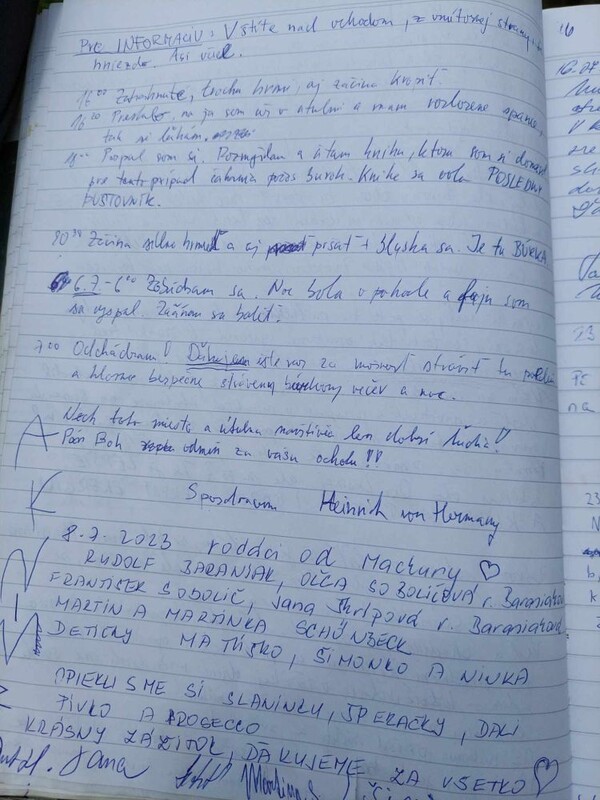 PRE INFORMÁCIU: V štíte nad vchodom, z vnútornej strany je
hniezdo. Asi včiel.
16⁰⁰ Zatiahnuté, trochu hrmí, aj začína kropiť.
16²⁰ no ja som už v útulni a mám rozložené spanie,
tak si líham,
19⁰⁰ Pospal som si. Rozmýšľam a čítam knihu, ktorú som si doniesol
pre tento prípad čakania počas búrok. Kniha sa volá POSLEDNÝ
PUSTOVNÍK.
20³⁰ Začína silno hrmieť a aj pršať + blýska sa. Je tu BÚRKA
6.7. - 6⁰⁰ Zobúdzam sa. Noc bola v pohode a fajn som
sa vyspal. Začínam sa baliť.
7⁰⁰ Odchádzam! Ďakujem ešte raz za možnosť stráviť tu
a hlavne bezpečne strávený búrkový večer a noc.
Nech toto miesto a útulňu navštívia len dobrí ľudia!
Pán Boh odmeň za vašu ochotu!!
S pozdravom Heinrich von Hermany
8.7.2023 rodáci od Mackuny ♡
RUDOLF BARANIAK, OĽGA SOBOLIČOVÁ r. Baraniaková
FRANTIŠEK SOBOLIČ, Jana r. Baraniaková
MARTIN A MARTINKA SCHÖNBECK
DETIČKY MATÚŠKO, ŠIMONKO A NINKA
OPIEKLI SME SI SLANINKU, ŠPEKÁČKY, DALI
PIVKO A PROSECCO
KRÁSNY ZÁŽITOK, ĎAKUJEME ZA VŠETKO ♡
Jana Martina S.